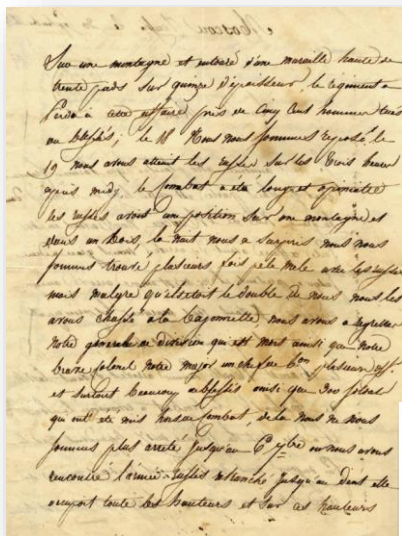 Sur une montagne et entouré d'une muraille haute de
trente pieds sur quinze d'épaisseur, le regiment a
perdu à cette affaire près de Cinq Cens hommes tués
ou blessés; le 18 Nous nous sommes reposé, le
19 nous avons atteint les russes sur les trois heures
apres midy le Combat a été long et opiniatre
les russes avoit une position sur une montagne et
dans un bois, la nuit nous a surpris nous nous
sommes trouvé plusieurs fois pele mele avec les russes
mais malgré qu'ils etoit le double de nous nous les
avons chassé à la bayonnette nous avons a regretter
notre général de division qui est mort ainsi que notre
brave Colonel notre major un chef de Bon plusieurs off.
et surtout beaucoup de blessés ainsi que 300 soldat
qui ont été mis hors de Combat, de la nous ne nous
sommes plus arreté jusqu'au 6 7bre ou nous avons
rencontré l'armée russes retranché jusqu'au dent elle
occupoit toute les hauteurs et sur ces hauteurs